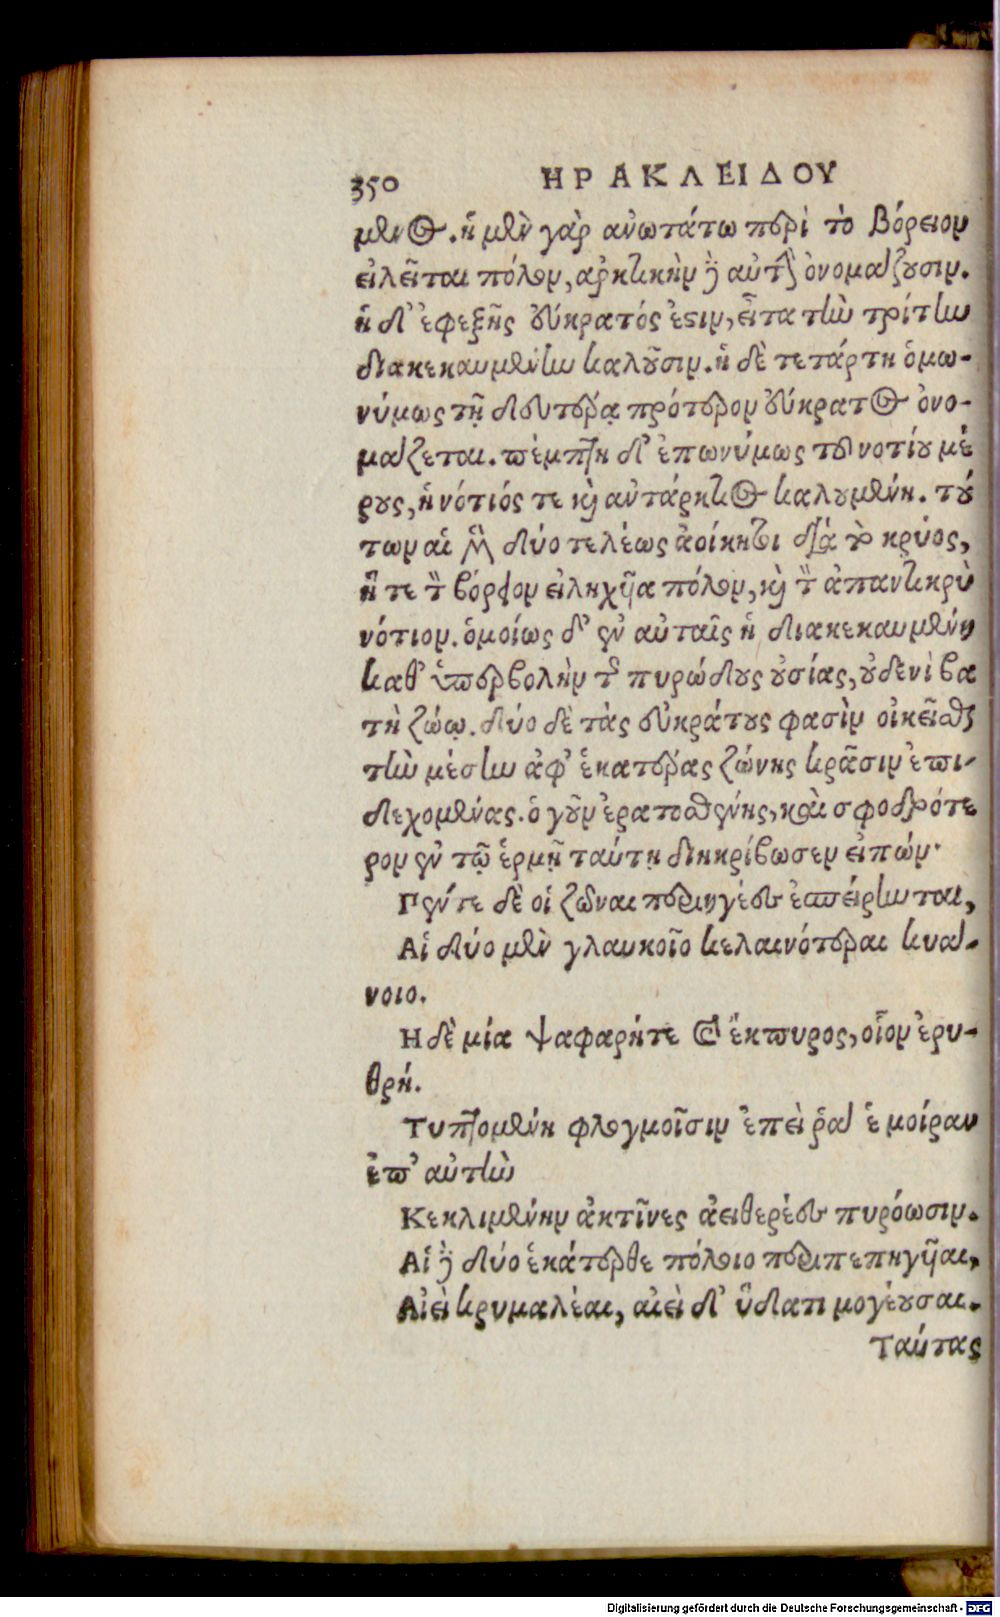 350 ΗΡΑΚΛΕΙΔΟΥ
μενος. ἡ μὲν γὰρ ἀνωτάτω περὶ τὸ βόρειον
εἰλεῖται πόλον, ἀρκτικὴν δὲ αὐτὴν ὀνομάζουσιν.
ἡ δ' ἐφεξῆς εὔκρατός ἐστιν, εἶτα τὴν τρίτην
διακεκαυμένην καλοῦσιν. ἡ δὲ τετάρτη ὁμω-
νύμως τῇ δευτέρᾳ πρότερον εὔκρατος ὀνο-
μάζεται. πέμπτη δ' ἐπωνύμως τοῦ νοτίου μέ
ρους, ἡ νότιός τε καὶ ἀντάρκτος καλουμένη. τού
των αἱ μὲν δύο τελέως ἀοίκητοι διὰ τὸ κρύος,
ἥ τε τὸν βόρειον εἰληχυῖα πόλον, καὶ τὸν ἀπαντικρὺ
νότιον. ὁμοίως δ' ἐν αὐταῖς ἡ διακεκαυμένη
καθ' ὑπερβολὴν τῆς πυρώδους οὐσίας, οὐδενὶ βα
τὴ ζώῳ. δύο δὲ τὰς εὐκράτους φασὶν οἰκεῖσθαι
τὴν μέσην ἀφ' ἑκατέρας ζώνης κρᾶσιν ἐπι-
δεχομένας. ὁ γοῦν ἐρατοσθένης, καὶ σφοδρότε
ρον ἐν τῷ ἑρμῇ ταύτῃ διηκρίβωσεν εἰπών·
Πέντε δὲ οἱ ζῶναι περιηγέες ἐσπείρηνται,
Αἱ δύο μὲν γλαυκοῖο κελαινότεραι κυά-
νοιο.
Η δὲ μία ψαφαρή τε καὶ ἔκπυρος, οἷον ἐρυ-
θρή.
Τυπτομένη φλογμοῖσιν ἐπεὶ ῥά ἑ μοίραν
ἐπ' αὐτὴν
Κεκλιμένην ἀκτῖνες ἀειθερέες πυρόωσιν.
Αἱ δὲ δύο ἑκάτερθε πόλοιο περιπεπηγυῖαι,
Αἰεὶ κρυμαλέαι, αἰεὶ δ' ὕδατι μογέουσαι.
Ταύτας
Digitalisierung gefördert durch die Deutsche Forschungsgemeinschaft - DFG